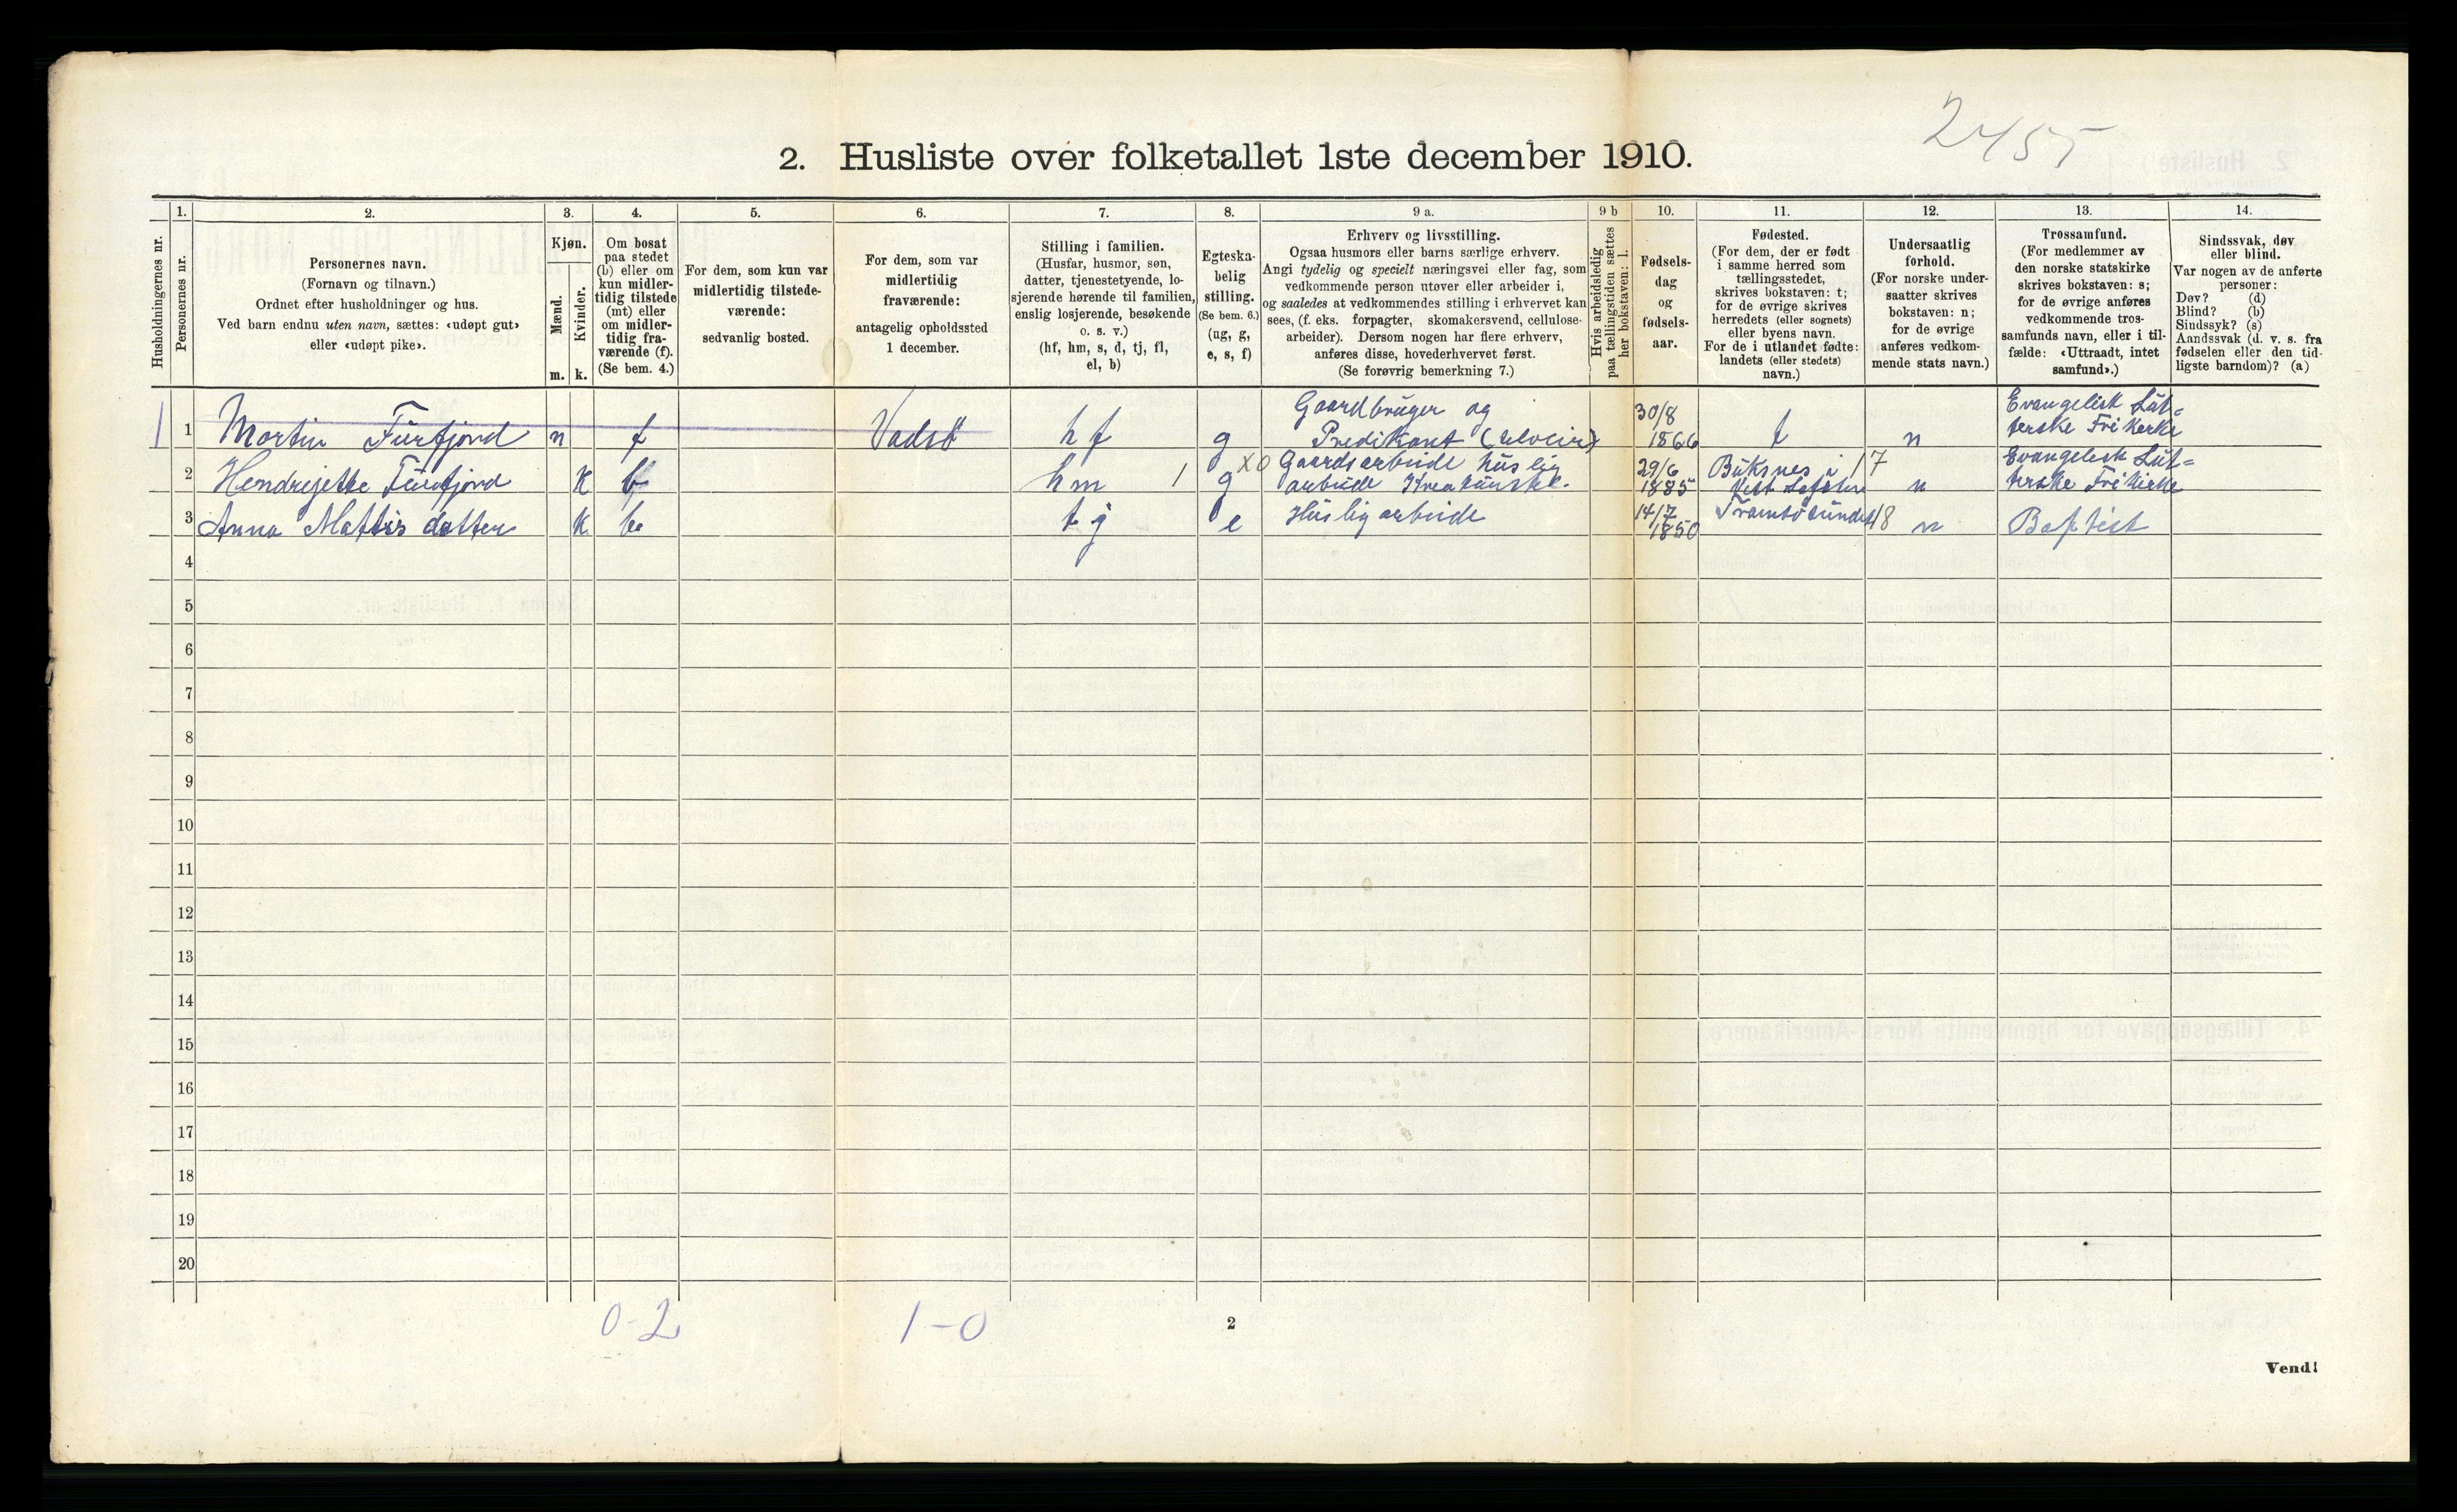 2455
2. Husliste over folketallet 1ste december 1910.
Husholdningernes nr.
1.
Personernes nr.
2.
Personernes navn.
(Fornavn og tilnavn.)
Ordnet efter husholdninger og hus.
Ved barn endnu uten navn, sættes: «udøpt gut»
eller «udøpt pike».
3.
Kjøn.
Mænd.
Kvinder.
m. k.
4.
Om bosat
paa stedet
(b) eller om
kun midler-
tidig tilstede
(mt) eller
om midler-
tidig fra-
værende (f).
(Se bem. 4.)
5.
For dem, som kun var
midlertidig tilstede-
værende:
sedvanlig bosted.
6.
For dem, som var
midlertidig
fraværende:
antagelig opholdssted
1 december.
7.
Stilling i familien.
(Husfar, husmor, søn,
datter, tjenestetyende, lo-
sjerende hørende til familien,
enslig losjerende, besøkende
o. s. v.)
(hf, hm, s, d, tj, fl,
el, b)
8.
Egteska-
belig
stilling.
(Se bem. 6.)
(ug, g,
e, s, f)
9 a.
Erhverv og livsstilling.
Ogsaa husmors eller barns særlige erhverv.
Angi tydelig og specielt næringsvei eller fag, som
vedkommende person utøver eller arbeider i,
og saaledes at vedkommendes stilling i erhvervet kan
sees, (f. eks. forpagter, skomakersvend, cellulose-
arbeider). Dersom nogen har flere erhverv,
anføres disse, hovederhvervet først.
(Se forøvrig bemerkning 7.)
9 b
Hvis arbeidsledig
paa tællingstiden sættes
her bokstaven: l.
10.
Fødsels-
dag
og
fødsels-
aar.
11.
Fødested.
(For dem, der er født
i samme herred som
tællingsstedet,
skrives bokstaven: t;
for de øvrige skrives
herredets (eller sognets)
eller byens navn.
For de i utlandet fødte:
landets (eller stedets)
navn.)
12.
Undersaatlig
forhold.
(For norske under-
saatter skrives
bokstaven: n;
for de øvrige
anføres vedkom-
mende stats navn.)
13.
Trossamfund.
(For medlemmer av
den norske statskirke
skrives bokstaven: s;
for de øvrige anføres
vedkommende tros-
samfunds navn, eller i til-
fælde: «Uttraadt, intet
samfund».)
14.
Sindssvak, døv
eller blind.
Var nogen av de anførte
personer:
Døv? (d)
Blind? (b)
Sindssyk? (s)
Aandssvak (d. v. s. fra
fødselen eller den tid-
ligste barndom)? (a)
1 1 Martin Furfjord m f Vadsö hf g Gaardbruger og
Predikant 30/8
1866 t n Evangelisk Lut=
terske Frikerke
2 Hendrejette Furfjord k b hm 1 g X0 Gaardsarbeide huslig
arbeide 29/6
1885 Buksnes i
Vest Lofoten 17 n Evangelisk Lut=
terske Frikirke
3 Anna Mattis datter k b tj e Huslig arbeide 14/7
1850 Tromsösundet 18 n Baptist
4
5
6
7
8
9
10
11
12
13
14
15
16
17
18
19
20
0-2 1-0
2
Vend!